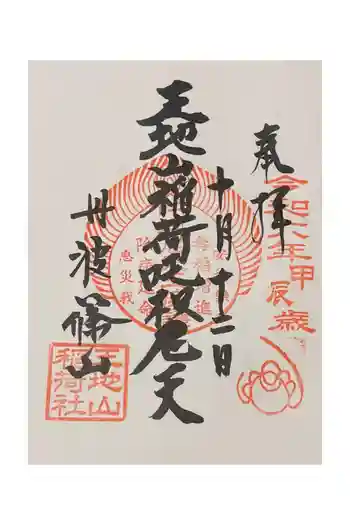 奉拝
令和六年甲辰歳
十月十二日
王地山稲荷吒枳尼天
丹波篠山
王地山
稲荷社